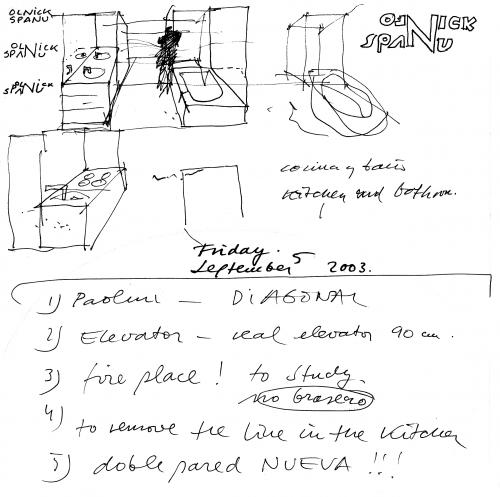 OLNICK
SPANU
OLNICK
SPANU
OLNICK
SPANU
OLNICK
SPANU
cocina y baño
Kitchen and bathroom.
Friday.
September 5 2003.
1) Paolini — DIAGONAL
2) Elevator — real elevator 90 cm.
3) fire place! to study.
no brasero
4) to remove the line in the kitchen
5) doble pared NUEVA !!!